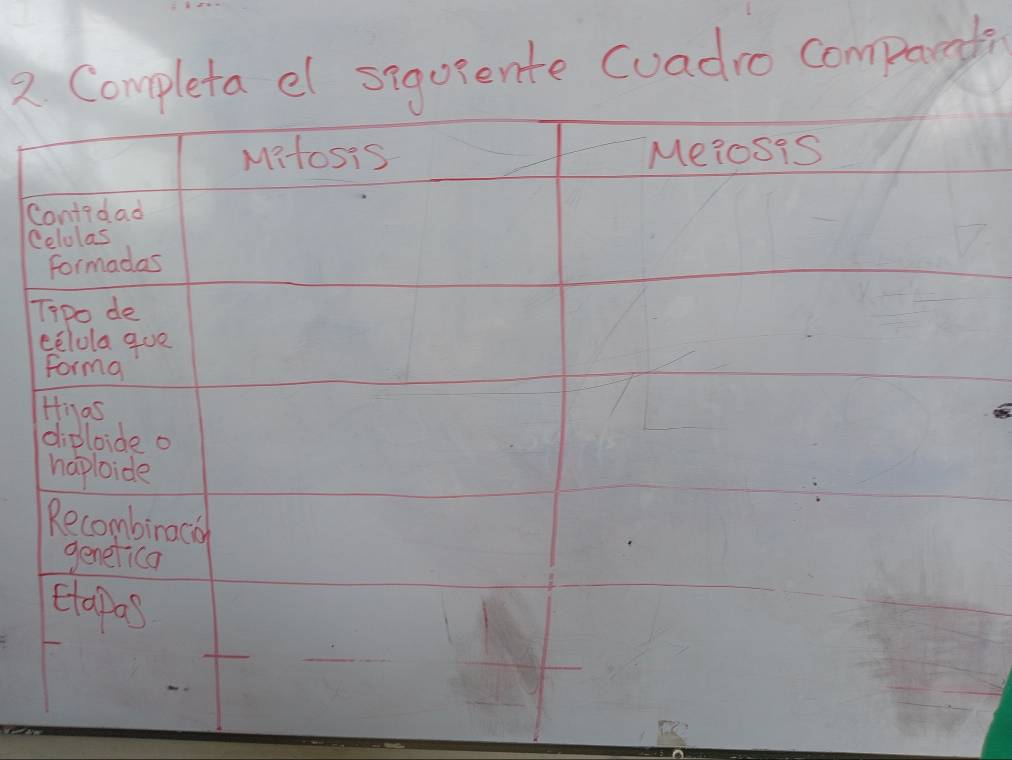 2. Completa el siguiente Cuadro Comparati
Mitosis
Meiosis
Cantidad
Celulas
Formadas
Tipo de
célula que
Forma
Hijas
diploide o
haploide
Recombinación
genetica
Etapas